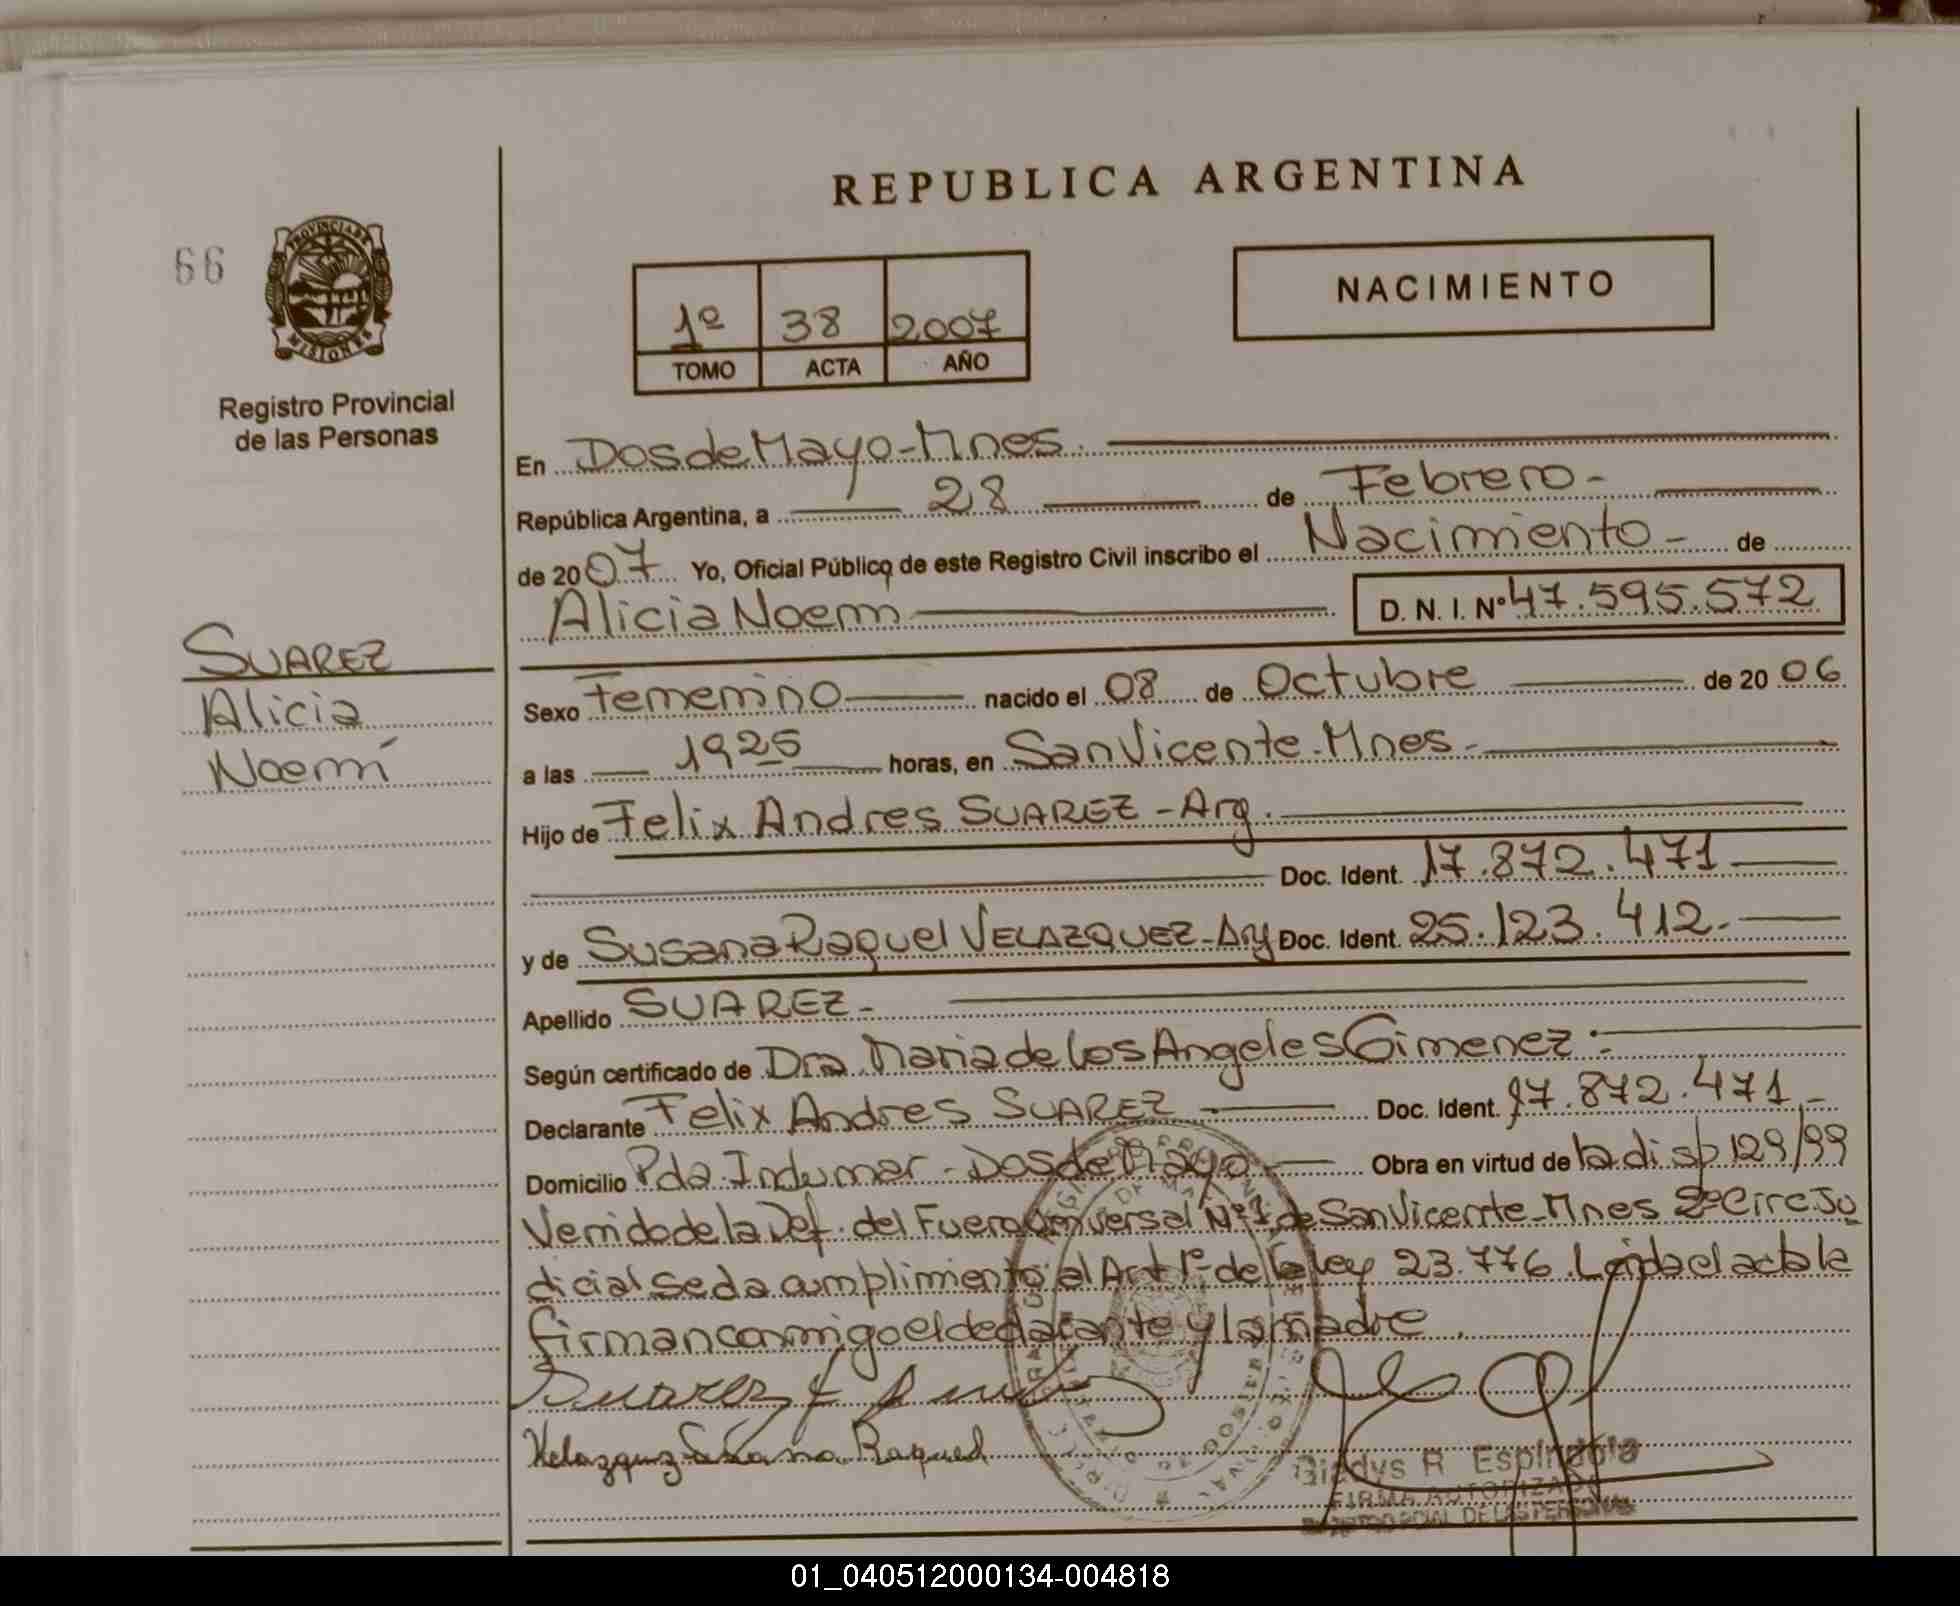 REPUBLICA ARGENTINA
66
PROVINCIA DE
MISIONES
Registro Provincial
de las Personas
1º 38 2007
TOMO ACTA AÑO
NACIMIENTO
En Dos de Mayo - Mnes.
República Argentina, a 28 de Febrero -
de 2007 Yo, Oficial Público de este Registro Civil inscribo el Nacimiento - de
Alicia Noemi D. N. I. Nº 47.595.572
SUAREZ
Alicia
Noemí
Sexo Femenino nacido el 08 de Octubre de 2006
a las 1925 horas, en San Vicente - Mnes -
Hijo de Felix Andres SUAREZ - Arg.
Doc. Ident. 17.872.471
y de Susana Raquel VELAZQUEZ - Arg Doc. Ident. 25.123.412.-
Apellido SUAREZ -
Según certificado de Dra. Maria de los Angeles Gimenez.-
Declarante Felix Andres SUAREZ Doc. Ident. 17.872.471.-
Domicilio Pda. Indumar - Dos de Mayo - Obra en virtud de la disp 129/99
Venido de la Def. del Fuero Universal Nº 1 de San Vicente - Mnes 2º Circ Ju
dicial se da cumplimiento al Art 1º de la ley 23.776. Leida el acta la
firman conmigo el declarante y la madre.
Suarez F
Velazquez Susana Raquel
Gladys R Espindola
FIRMA AUTORIZADA
01_040512000134-004818